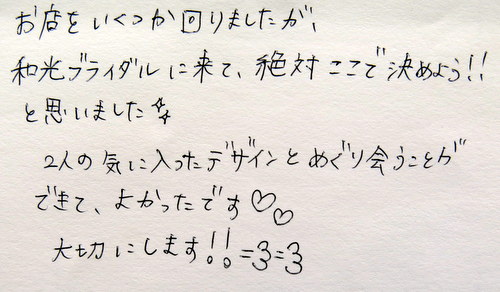 お店をいくつか回りましたが、
和光ブライダルに来て、絶対ここで決めよう!!
と思いました☆☆
2人の気に入ったデザインとめぐり会うことが
できて、よかったです♡♡
大切にします!!=3=3